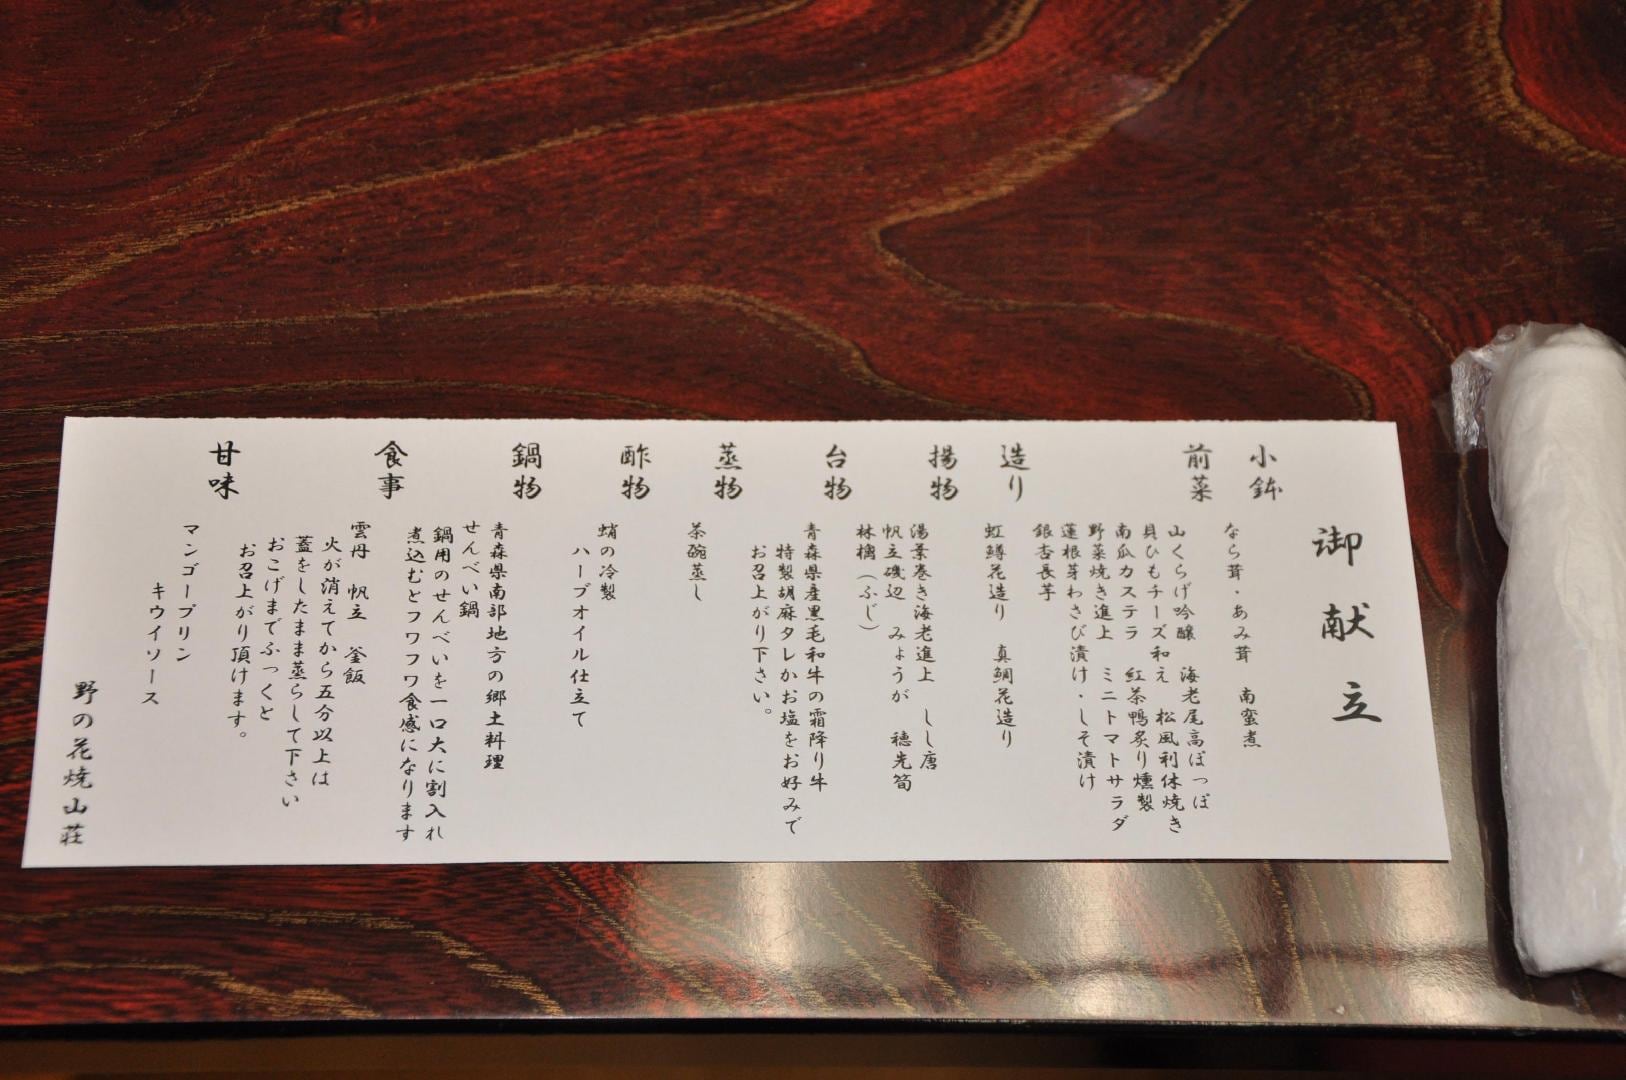 御献立
小鉢
なら茸・あみ茸 南蛮煮
前菜
山くらげ吟醸 海老尾高ぽっぽ
貝ひもチーズ和え 松風利休焼き
南瓜カステラ 紅茶鴨炙り燻製
野菜焼き進上 ミニトマトサラダ
蓮根芽わさび漬け・しそ漬け
銀杏長芋
造り
虹鱒花造り 真鯛花造り
揚物
湯葉巻き海老進上 しし唐
帆立磯辺 みょうが 穂先筍
林檎(ふじ)
台物
青森県産黒毛和牛の霜降り牛
特製胡麻タレかお塩をお好みで
お召上がり下さい。
蒸物
茶碗蒸し
酢物
蛸の冷製
ハーブオイル仕立て
鍋物
青森県南部地方の郷土料理
せんべい鍋
鍋用のせんべいを一口大に割入れ
煮込むとフワフワ食感になります
食事
雲丹 帆立 釜飯
火が消えてから五分以上は
蓋をしたまま蒸らして下さい
おこげまでふっくと
お召上がり頂けます。
甘味
マンゴープリン
キウイソース
野の花焼山荘